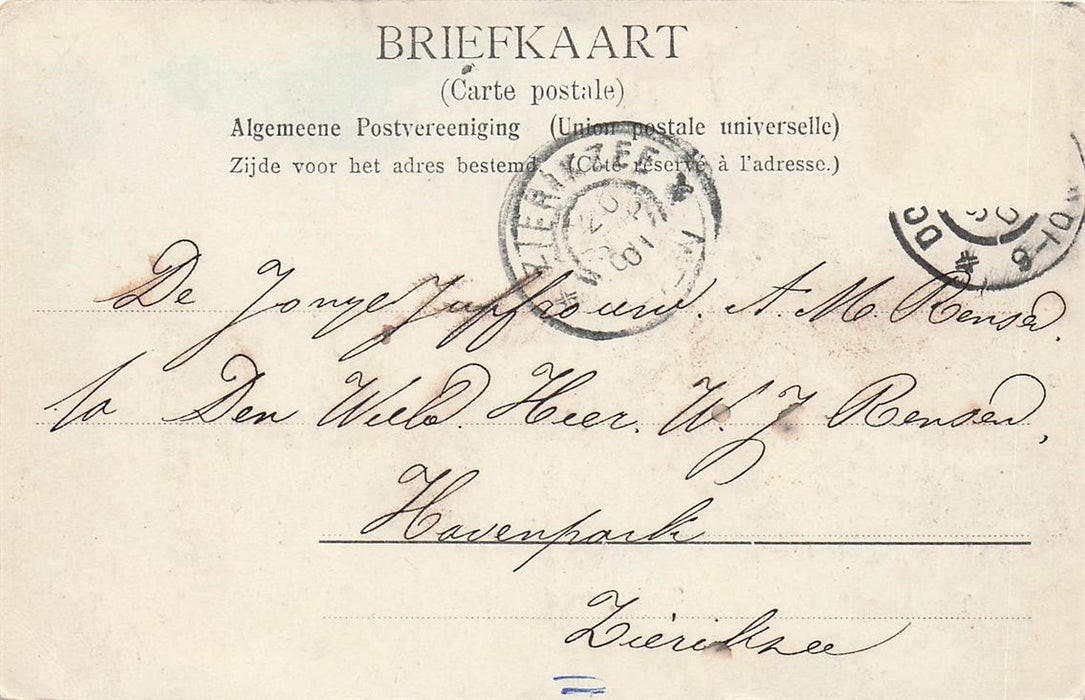 BRIEFKAART
(Carte postale)
Algemeene Postvereeniging (Union postale universelle)
Zijde voor het adres bestemd (Côté réservé à l'adresse.)
ZIERIKZEE
DO
9-10
De Jonge Juffrouw. A. M. Rensen.
p/a Den WelEd. Heer. W. J Rensen,
Havenpark
Zierikzee